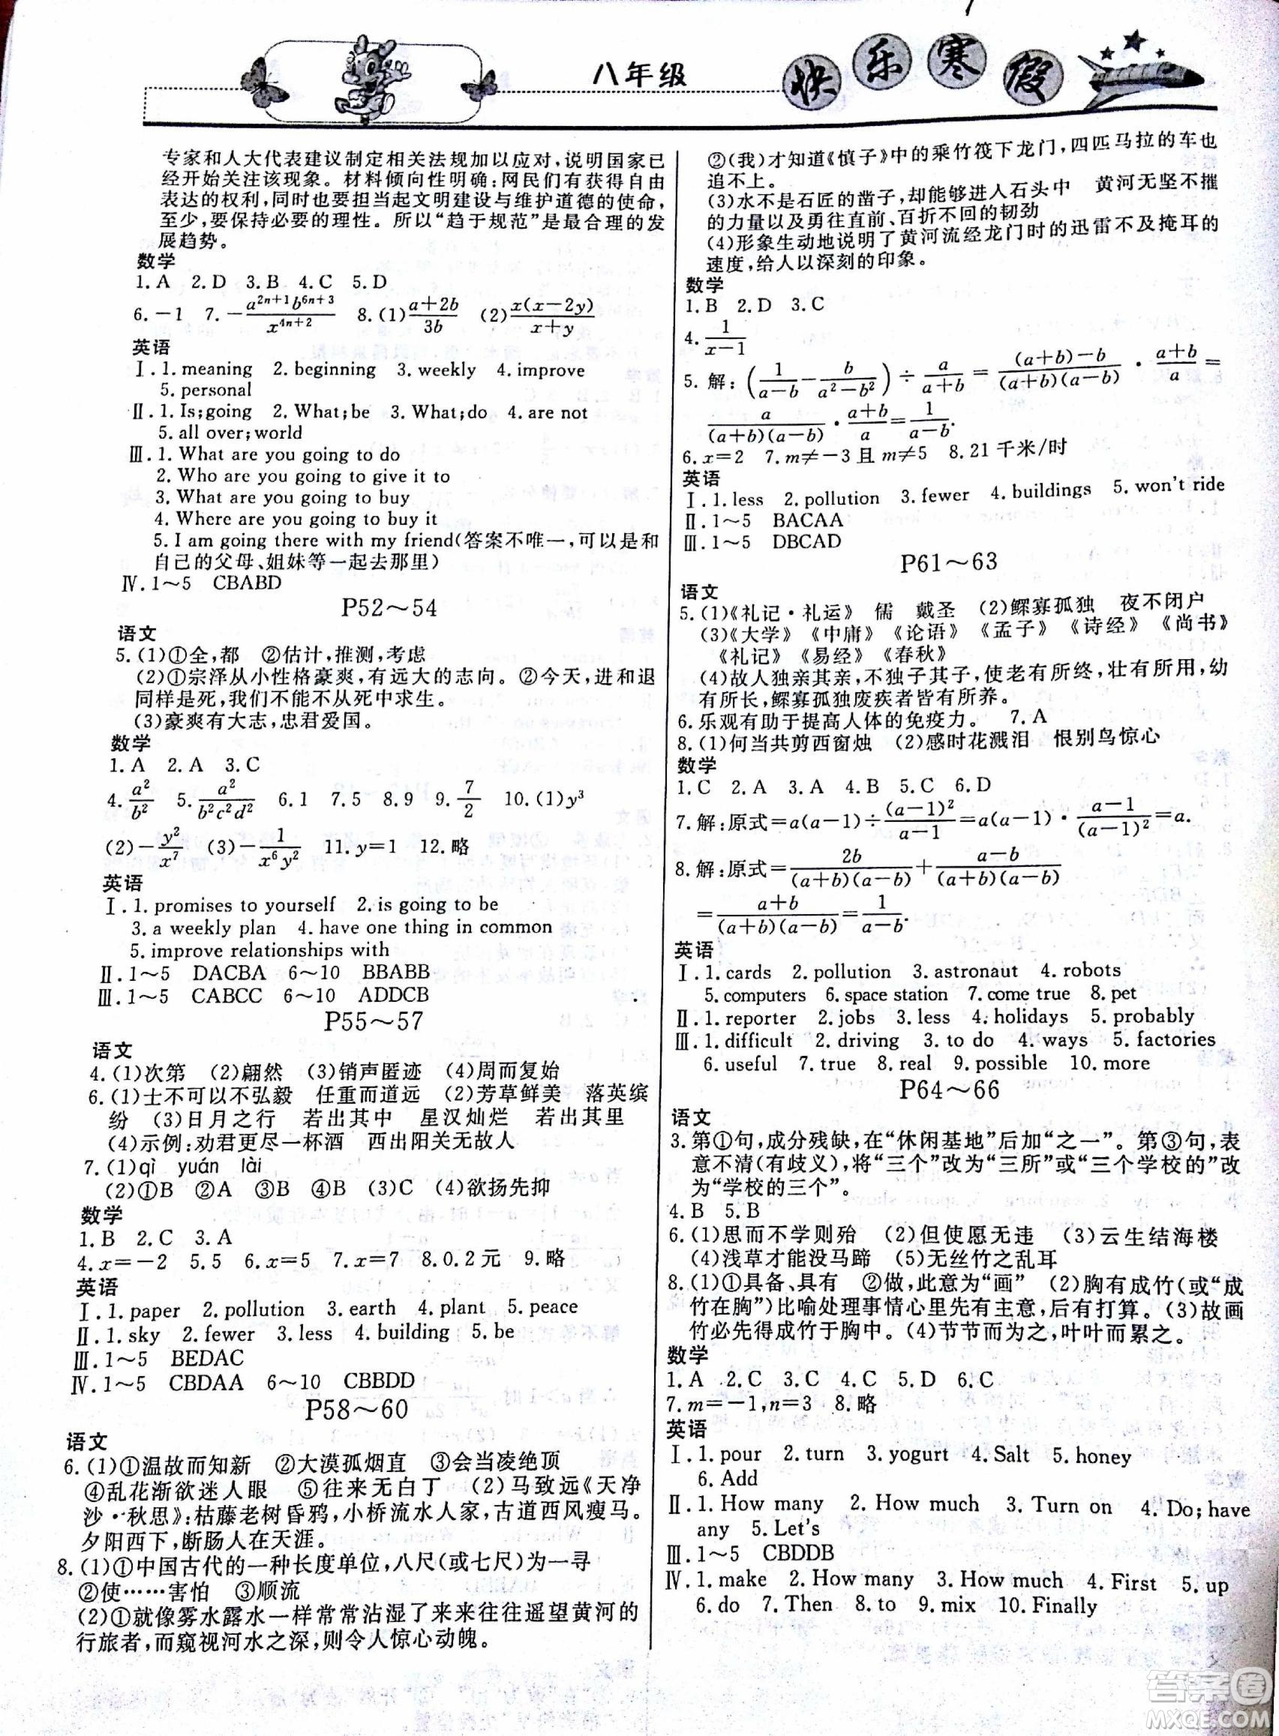 八年级
快乐寒假
专家和人大代表建议制定相关法规加以应对,说明国家已
经开始关注该现象。材料倾向性明确:网民们有获得自由
表达的权利,同时也要担当起文明建设与维护道德的使命,
至少,要保持必要的理性。所以“趋于规范”是最合理的发
展趋势。
数学
1.A 2.D 3.B 4.C 5.D
6.-1 7.-a^{2n+1}b^{6n+3}/x^{4n+2} 8.(1)(a+2b)/3b (2)x(x-2y)/(x+y)
英语
Ⅰ.1. meaning 2. beginning 3. weekly 4. improve
5. personal
Ⅱ.1. Is;going 2. What;be 3. What;do 4. are not
5. all over;world
Ⅲ.1. What are you going to do
2. Who are you going to give it to
3. What are you going to buy
4. Where are you going to buy it
5. I am going there with my friend(答案不唯一,可以是和
自己的父母、姐妹等一起去那里)
Ⅳ.1～5 CBABD
P52～54
语文
5.(1)①全,都 ②估计,推测,考虑
(2)①宗泽从小性格豪爽,有远大的志向。②今天,进和退
同样是死,我们不能不从死中求生。
(3)豪爽有大志,忠君爱国。
数学
1.A 2.A 3.C
4.a²/b² 5.a²/b²c²d² 6.1 7.5 8.9 9.7/2 10.(1)y³
(2)-y²/x⁷ (3)-1/x⁶y² 11.y=1 12.略
英语
Ⅰ.1. promises to yourself 2. is going to be
3. a weekly plan 4. have one thing in common
5. improve relationships with
Ⅱ.1～5 DACBA 6～10 BBABB
Ⅲ.1～5 CABCC 6～10 ADDCB
P55～57
语文
4.(1)次第 (2)翩然 (3)销声匿迹 (4)周而复始
6.(1)士不可以不弘毅 任重而道远 (2)芳草鲜美 落英缤
纷 (3)日月之行 若出其中 星汉灿烂 若出其里
(4)示例:劝君更尽一杯酒 西出阳关无故人
7.(1)qǐ yuán lài
(2)①B ②A ③B ④B (3)C (4)欲扬先抑
数学
1.B 2.C 3.A
4.x=-2 5.5 6.1 7.x=7 8.0.2元 9.略
英语
Ⅰ.1. paper 2. pollution 3. earth 4. plant 5. peace
Ⅱ.1. sky 2. fewer 3. less 4. building 5. be
Ⅲ.1～5 BEDAC
Ⅳ.1～5 CBDAA 6～10 CBBDD
P58～60
语文
6.(1)①温故而知新 ②大漠孤烟直 ③会当凌绝顶
④乱花渐欲迷人眼 ⑤往来无白丁 (2)马致远《天净
沙·秋思》:枯藤老树昏鸦,小桥流水人家,古道西风瘦马。
夕阳西下,断肠人在天涯。
8.(1)①中国古代的一种长度单位,八尺(或七尺)为一寻
②使……害怕 ③顺流
(2)①就像雾水露水一样常常沾湿了来来往往遥望黄河的
行旅者,而窥视河水之深,则令人惊心动魄。
②(我)才知道《慎子》中的乘竹筏下龙门,四匹马拉的车也
追不上。
(3)水不是石匠的凿子,却能够进入石头中 黄河无坚不摧
的力量以及勇往直前、百折不回的韧劲
(4)形象生动地说明了黄河流经龙门时的迅雷不及掩耳的
速度,给人以深刻的印象。
数学
1.B 2.D 3.C
4.1/(x-1)
5.解:(1/(a-b)-b/(a²-b²))÷a/(a+b)=((a+b)-b)/((a+b)(a-b))·(a+b)/a=
a/((a+b)(a-b))·(a+b)/a=1/(a-b).
6.x=2 7.m≠-3且m≠5 8.21千米/时
英语
Ⅰ.1. less 2. pollution 3. fewer 4. buildings 5. won't ride
Ⅱ.1～5 BACAA
Ⅲ.1～5 DBCAD
P61～63
语文
5.(1)《礼记·礼运》 儒 戴圣 (2)鳏寡孤独 夜不闭户
(3)《大学》《中庸》《论语》《孟子》《诗经》《尚书》
《礼记》《易经》《春秋》
(4)故人独亲其亲,不独子其子,使老有所终,壮有所用,幼
有所长,鳏寡孤独废疾者皆有所养。
6.乐观有助于提高人体的免疫力。 7.A
8.(1)何当共剪西窗烛 (2)感时花溅泪 恨别鸟惊心
数学
1.C 2.A 3.A 4.B 5.C 6.D
7.解:原式=a(a-1)÷(a-1)²/(a-1)=a(a-1)·(a-1)/(a-1)²=a.
8.解:原式=2b/((a+b)(a-b))+(a-b)/((a+b)(a-b))
=(a+b)/((a+b)(a-b))=1/(a-b).
英语
Ⅰ.1. cards 2. pollution 3. astronaut 4. robots
5. computers 6. space station 7. come true 8. pet
Ⅱ.1. reporter 2. jobs 3. less 4. holidays 5. probably
Ⅲ.1. difficult 2. driving 3. to do 4. ways 5. factories
6. useful 7. true 8. real 9. possible 10. more
P64～66
语文
3.第①句,成分残缺,在“休闲基地”后加“之一”。第③句,表
意不清(有歧义),将“三个”改为“三所”或“三个学校的”改
为“学校的三个”。
4.B 5.B
6.(1)思而不学则殆 (2)但使愿无违 (3)云生结海楼
(4)浅草才能没马蹄 (5)无丝竹之乱耳
8.(1)①具备、具有 ②做,此意为“画” (2)胸有成竹(或“成
竹在胸”)比喻处理事情心里先有主意,后有打算。(3)故画
竹必先得成竹于胸中。(4)节节而为之,叶叶而累之。
数学
1.A 2.C 3.C 4.C 5.D 6.C
7.m=-1,n=3 8.略
英语
Ⅰ.1. pour 2. turn 3. yogurt 4. Salt 5. honey
6. Add
Ⅱ.1. How many 2. How much 3. Turn on 4. Do;have
any 5. Let's
Ⅲ.1～5 CBDDB
Ⅳ.1. make 2. How many 3. How much 4. First 5. up
6. do 7. Then 8. to 9. mix 10. Finally
答案卷
MXQE.COM